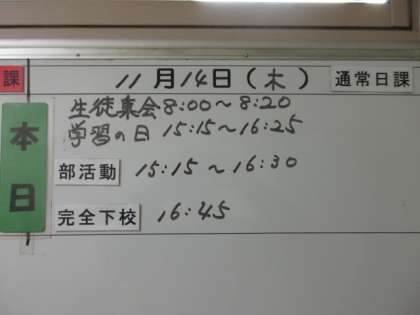 課 11月14日(木) 通常日課
本日
生徒集会 8:00～8:20
学習の日 15:15～16:25
部活動 15:15～16:30
完全下校 16:45